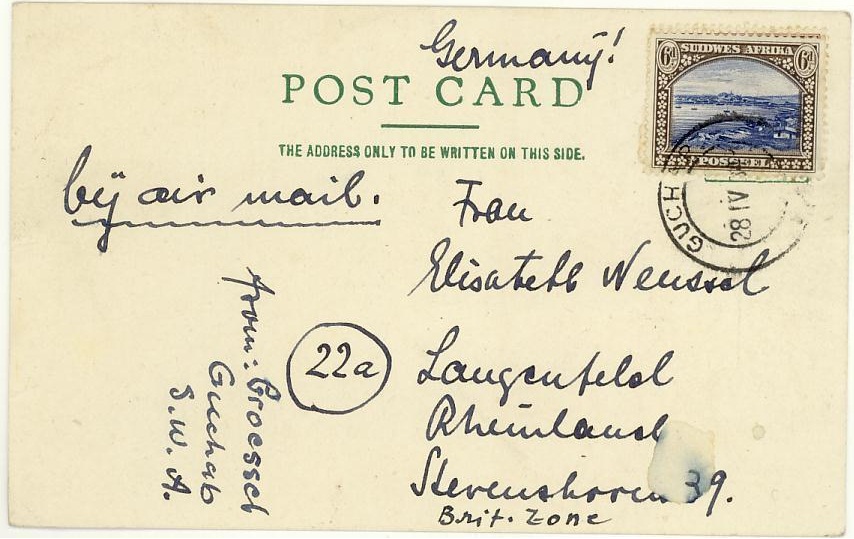 Germany!
6d SUIDWES AFRIKA 6d
POSSEËL
POST CARD
THE ADDRESS ONLY TO BE WRITTEN ON THIS SIDE.
GUCHAB
28 IV
by air mail.
Frau
Elisabeth Neussel
22a
Langenfeld
Rheinland
39.
Brit. Zone
from:
Guchab
S.W.A.